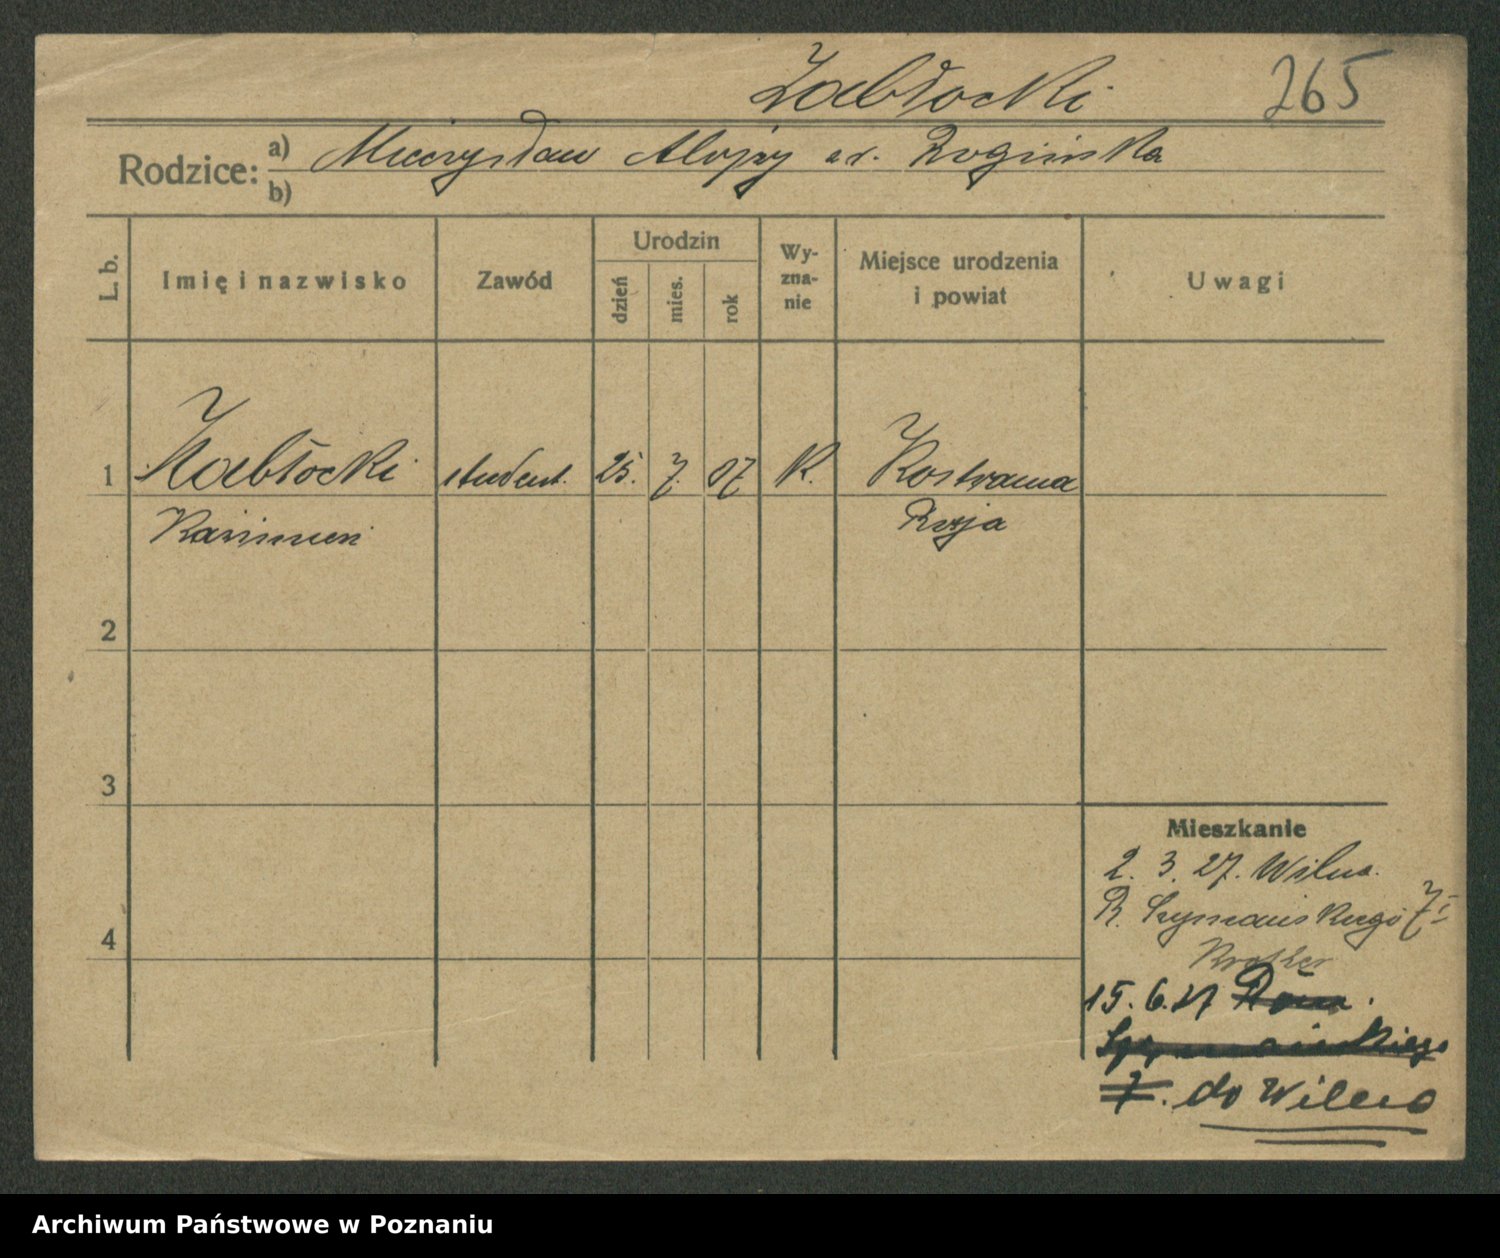 Zabłocki 265
Rodzice: a) Mieczysław Alojzy z d. Rogińska
b)
L. b. Imię i nazwisko Zawód Urodzin dzień mies. rok Wy-zna-nie Miejsce urodzenia i powiat Uwagi
1 Zabłocki student. 25. 7. 07 K. Kostroma
Kazimierz Rosja
2
3
Mieszkanie
2. 3. 27. Wilno.
R. Szymańskiego 7I
4
15. 6. 27
Szymańskiego
7. do Wilna
Archiwum Państwowe w Poznaniu